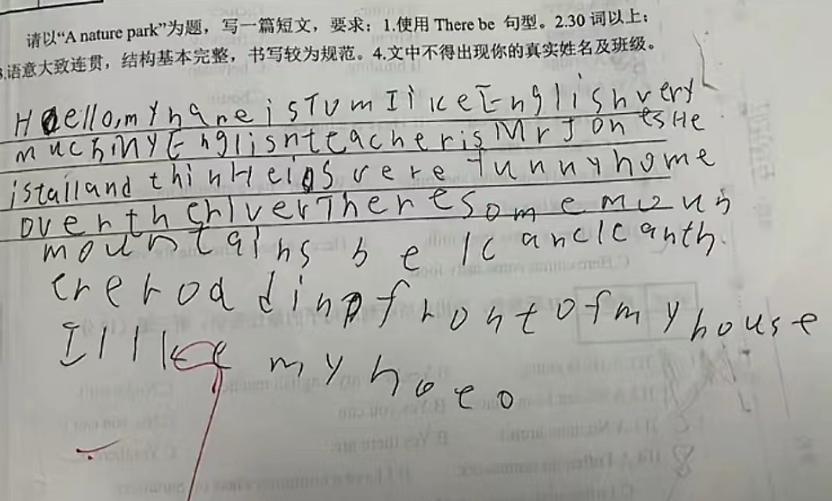 请以“A nature park”为题，写一篇短文，要求：1.使用 There be 句型。2.30 词以上；
3.语意大致连贯，结构基本完整，书写较为规范。4.文中不得出现你的真实姓名及班级。
Hello,my name is Tom I like English very
much My English teacher is Mr Jones He
is tall and thin He is vere funny home
over the river There some moun
mountains be
rod din front of my house
I like my